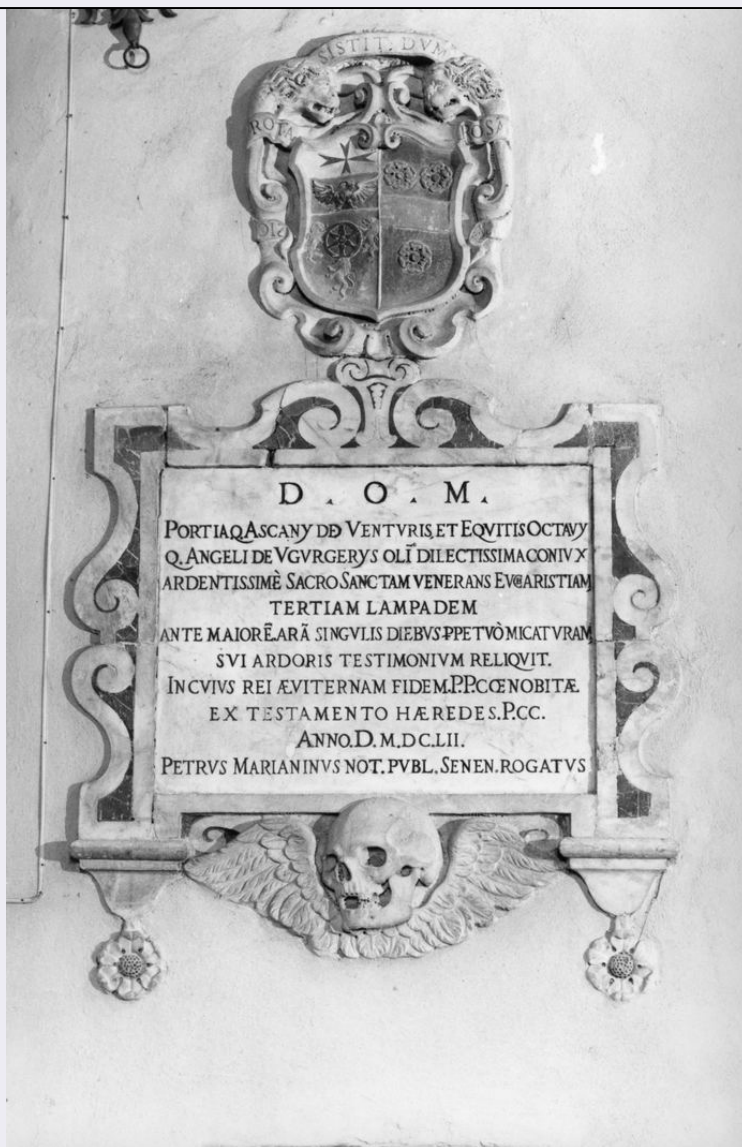 SISTIT. DVM
ROTA ROSA
D. O. M.
PORTIA Q ASCANY DD VENTVRIS, ET EQVITIS OCTAVY
Q. ANGELI DE VGVRGERYS OLĪ DILECTISSIMA CONIVX
ARDENTISSIMÈ SACRO SANCTAM VENERANS EVCHARISTIAM
TERTIAM LAMPADEM
ANTE MAIORẼ ARÃ SINGVLIS DIEBVS PPETVÒ MICATVRAM
SVI ARDORIS TESTIMONIVM RELIQVIT.
IN CVIVS REI ÆVITERNAM FIDEM. P.P. CŒNOBITÆ
EX TESTAMENTO HÆREDES. P.CC.
ANNO. D. M. DC. LII.
PETRVS MARIANINVS NOT. PVBL. SENEN. ROGATVS